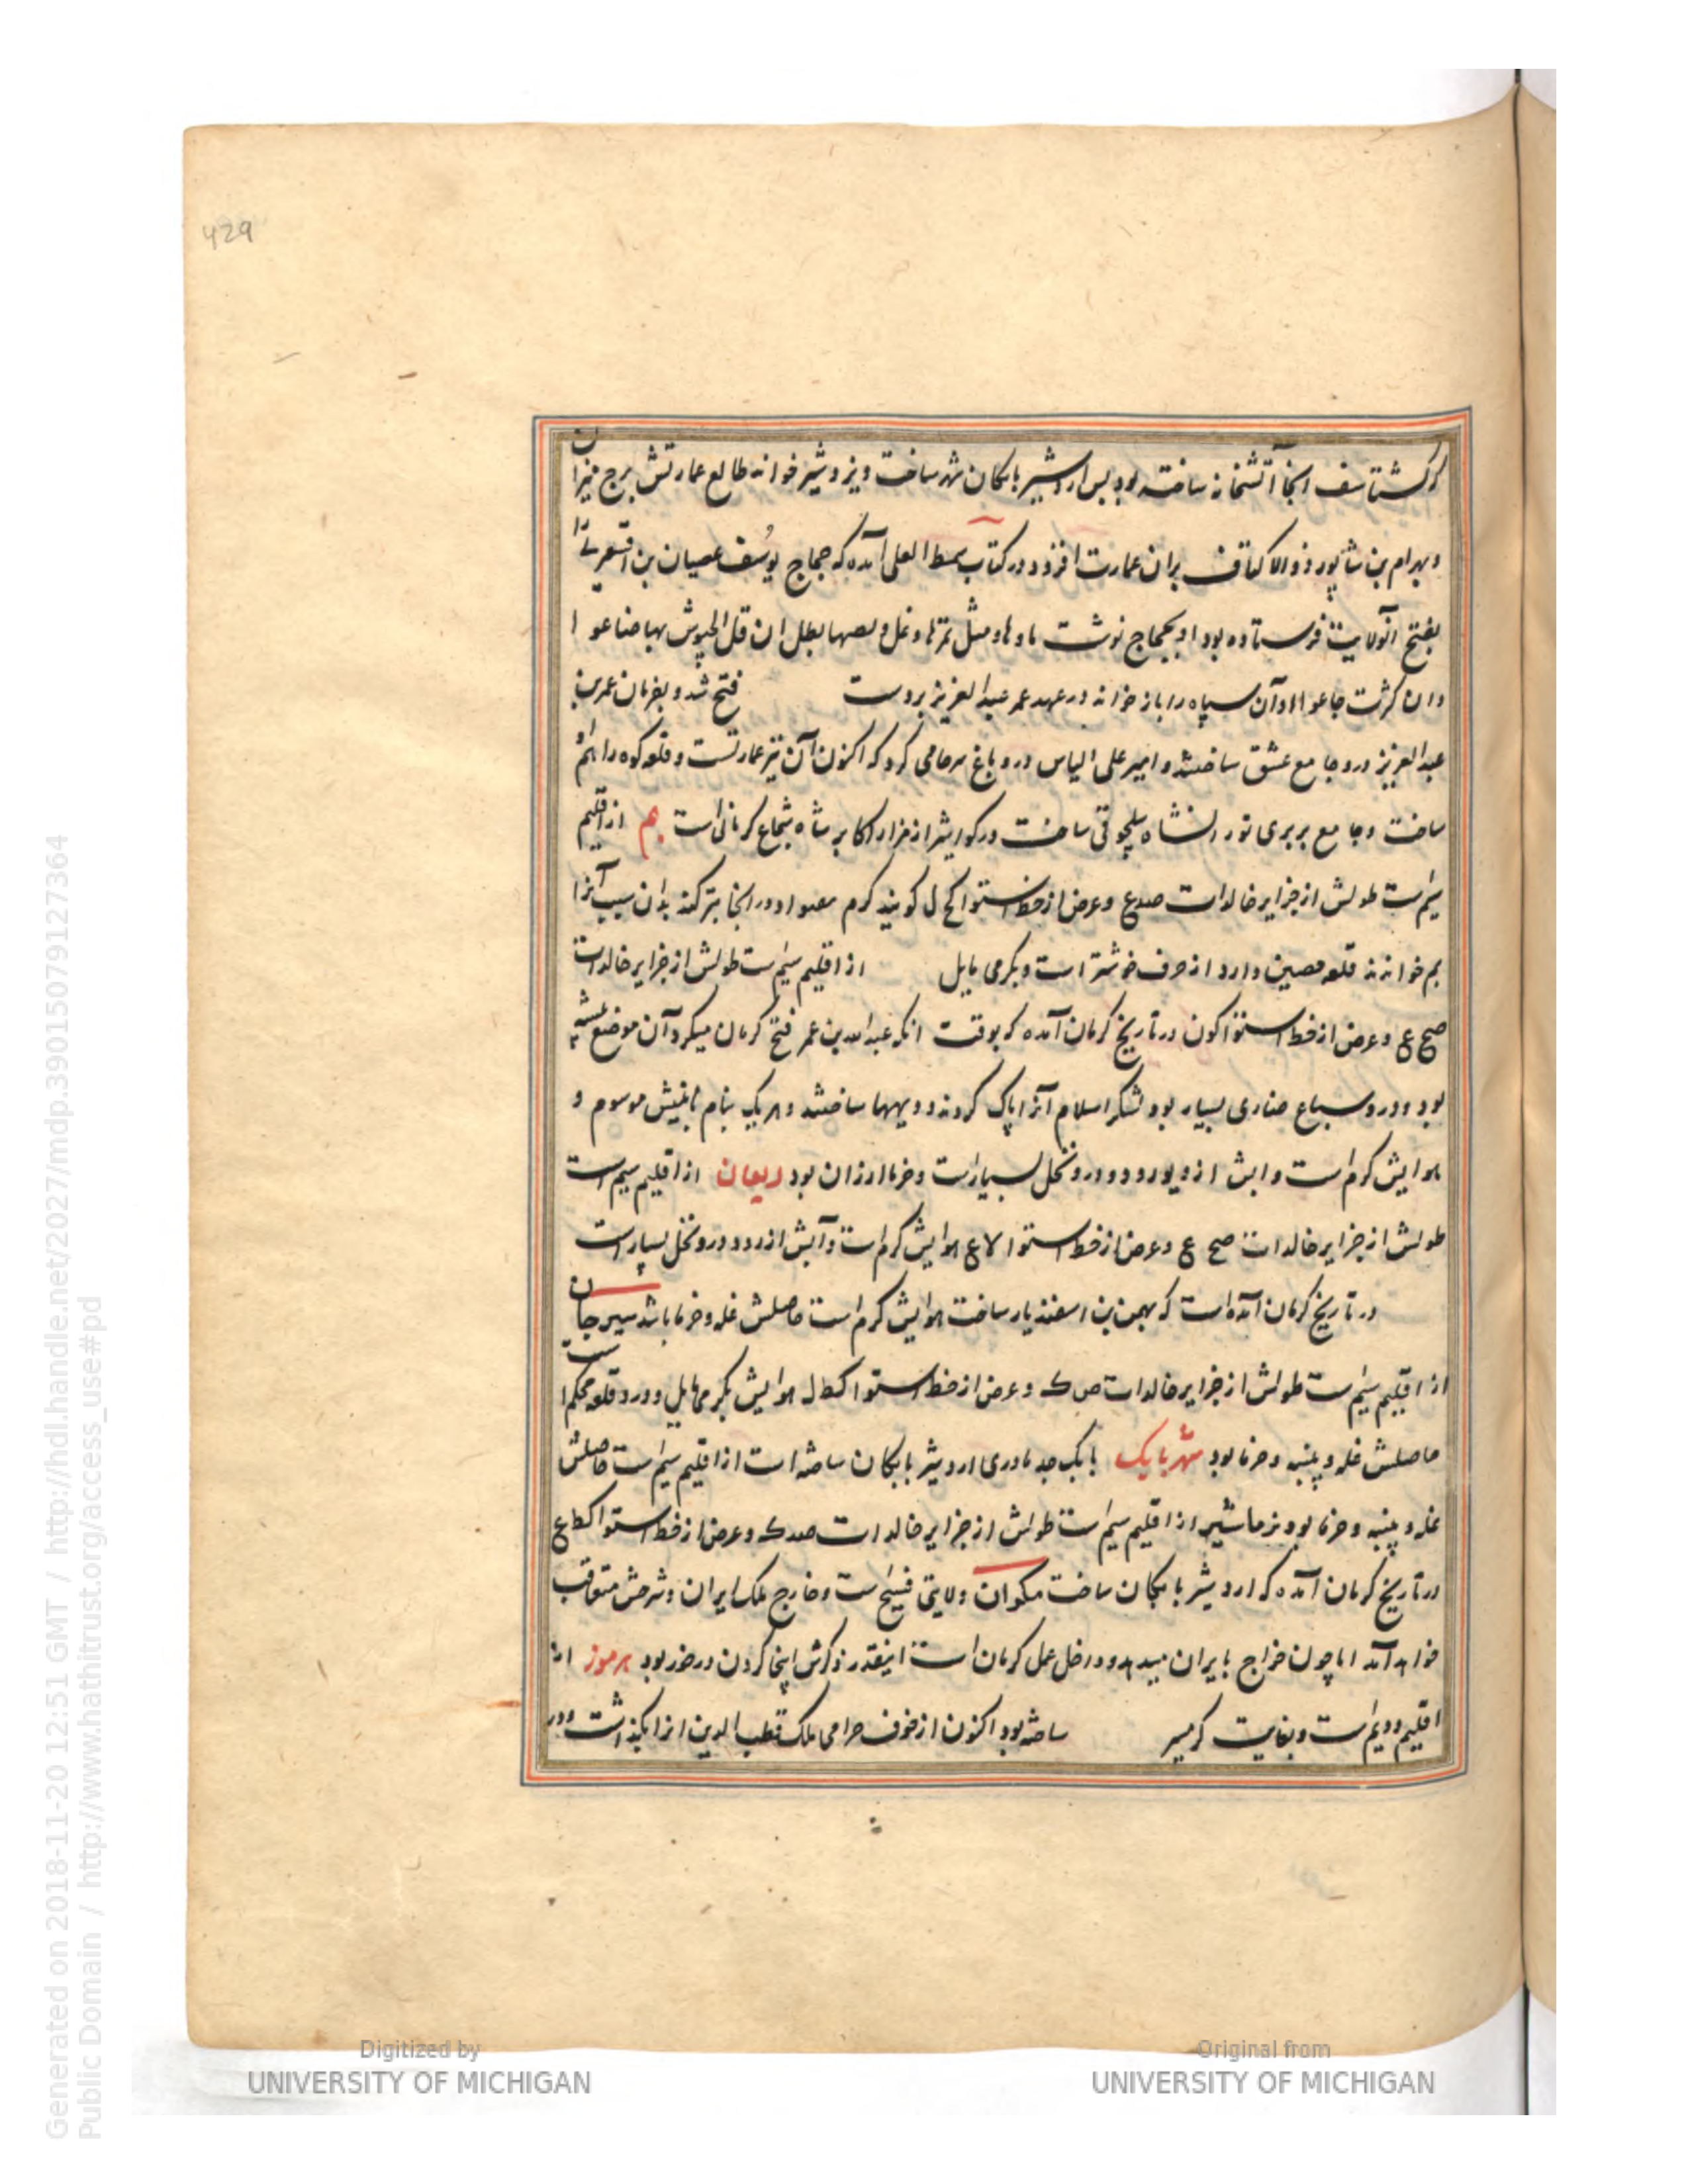 429
که گشتاسف انجا آتشخانه ساخته بود پس اردشیر بابکان شهر ساخت ویزوشیر خوانه طالع عمارتش برج میزان
و بهرام بن شاپور ذوالاکتاف بران عمارت افزود در کتاب سمط العلی آمده که حجاج یوسف عصیان بن
بفتح آنولایت فرستاده بود او بحجاج نوشت ماوها وشل تمرها دغل ولصها بطل ان قل الجیوش بهاضاعوا
وان کثرت جاعوا اوآن سپاه را باز خوانه در عهد عمر عبد العزیز بر دست فتح شد و بفرمان عمر بن
عبد العزیز درو جامع عشق ساختند و امیر علی الیاس درو باغ سرحامی کرد که اکنون آن نیز عمارتست و قلعه کوه را هم او
ساخت و جامع بربری تورانشاه سلجوقی ساخت در کواشر از مزار اکابر شاه شجاع کرمانی است بم از اقلیم
سیم است طولش از جزایر خالدات صدع و عرض از خط استوا کح ل کویند کرم معواد در انجا بترکند بدان سبب آنرا
بم خواندند قلعه حصین دارد از جرف خوشتر است و بکرمی مایل از اقلیم سیم است طولش از جزایر خالدات
صح ع و عرض از خط استوا کون در تاریخ کرمان آمده که بوقت انکه عبد الله بن عمر فتح کرمان میکرد آن موضع بیشه
بود و درو سباع ضاری بسیار بود لشکر اسلام آنرا پاک کردند و دیهها ساختند و هر یک بنام بانیش موسوم و
هوایش کرم است و ابش از دیورود و درو نخل بسیار است و خرما ارزان بود ریعان از اقلیم سیم است
طولش از جزایر خالدات صح ع و عرض از خط استوا لاع هوایش کرم است و آبش از رود و درو نخل بسیار است
در تاریخ کرمان آمده است که بهمن بن اسفندیار ساخت هوایش کرم است حاصلش غله و خرما باشد سیرجان
از اقلیم سیم است طولش از جزایر خالدات ص ک و عرض از خط استوا کط ل هوایش بکرمی مایل و درو قلعه محکم است
حاصلش غله و پنبه و خرما بود شهر بابک بابک جد مادری اردشیر بابکان ساخته است از اقلیم سیم است حاصلش
غله و پنبه و خرما بود نرماشیر از اقلیم سیم است طولش از جزایر خالدات صدک و عرض از خط استوا کط ع
در تاریخ کرمان آمده که اردشیر بابکان ساخت مکران ولایتی فسیح است و خارج ملک ایران و شرحش متعاقب
خواهد آمد اما چون خراج بایران میدهد و در خل عمل کرمان است اینقدر ذکرش اینجا کردن در خور بود هرموز از
اقلیم دویم است و بغایت کرمسیر ساخته بود اکنون از خوف حرامی ملک قطب الدین انرا بگذاشت و در
Digitized by
UNIVERSITY OF MICHIGAN
Original from
UNIVERSITY OF MICHIGAN
Generated on 2018-11-20 12:51 GMT / http://hdl.handle.net/2027/mdp.39015079127364
Public Domain / http://www.hathitrust.org/access_use#pd